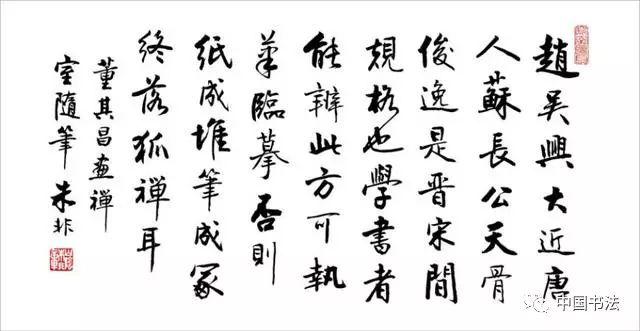 趙吳興大近唐
人蘇長公天骨
俊逸是晉宋間
規格也學書者
能辨此方可執
筆臨摹否則
紙成堆筆成冢
終落狐禪耳
董其昌畫禪
室隨筆朱非
中国书法